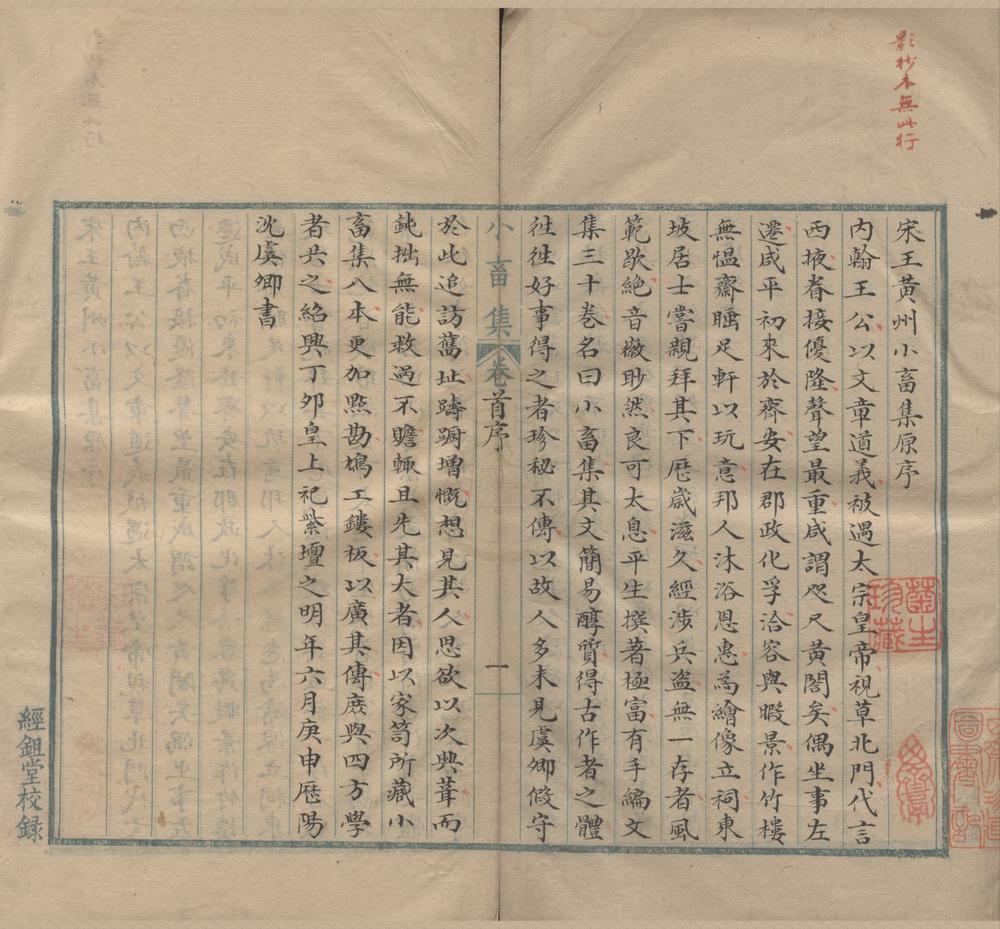 影抄本無此行
宋王黄州小畜集原序
内翰王公以文章道義被遇太宗皇帝視草北門代言
西掖眷接優隆聲望最重咸謂咫尺黄閤矣偶坐事左
遷咸平初來於齊安在郡政化孚洽容與暇景作竹樓
無愠齋睡足軒以玩意邦人沐浴恩惠為繪像立祠東
坡居士嘗親拜其下歴歳滋久經涉兵盗無一存者風
範歇絶音徽眇然良可太息平生撰著極富有手編文
集三十巻名曰小畜集其文簡易醇質得古作者之體
徃徃好事得之者珍秘不傳以故人多未見虞卿假守
小畜集 卷首序 一
於此追訪舊址躊躕增慨想見其人思欲以次興葺而
鈍拙無能救過不贍輒且先其大者因以家笥所藏小
畜集八本更加㸃勘鳩工鏤板以廣其傳庶與四方學
者共之紹興丁夘皇上祀紫壇之明年六月庚申歴陽
沈虞卿書
經鉏堂校録
菊生
珍藏